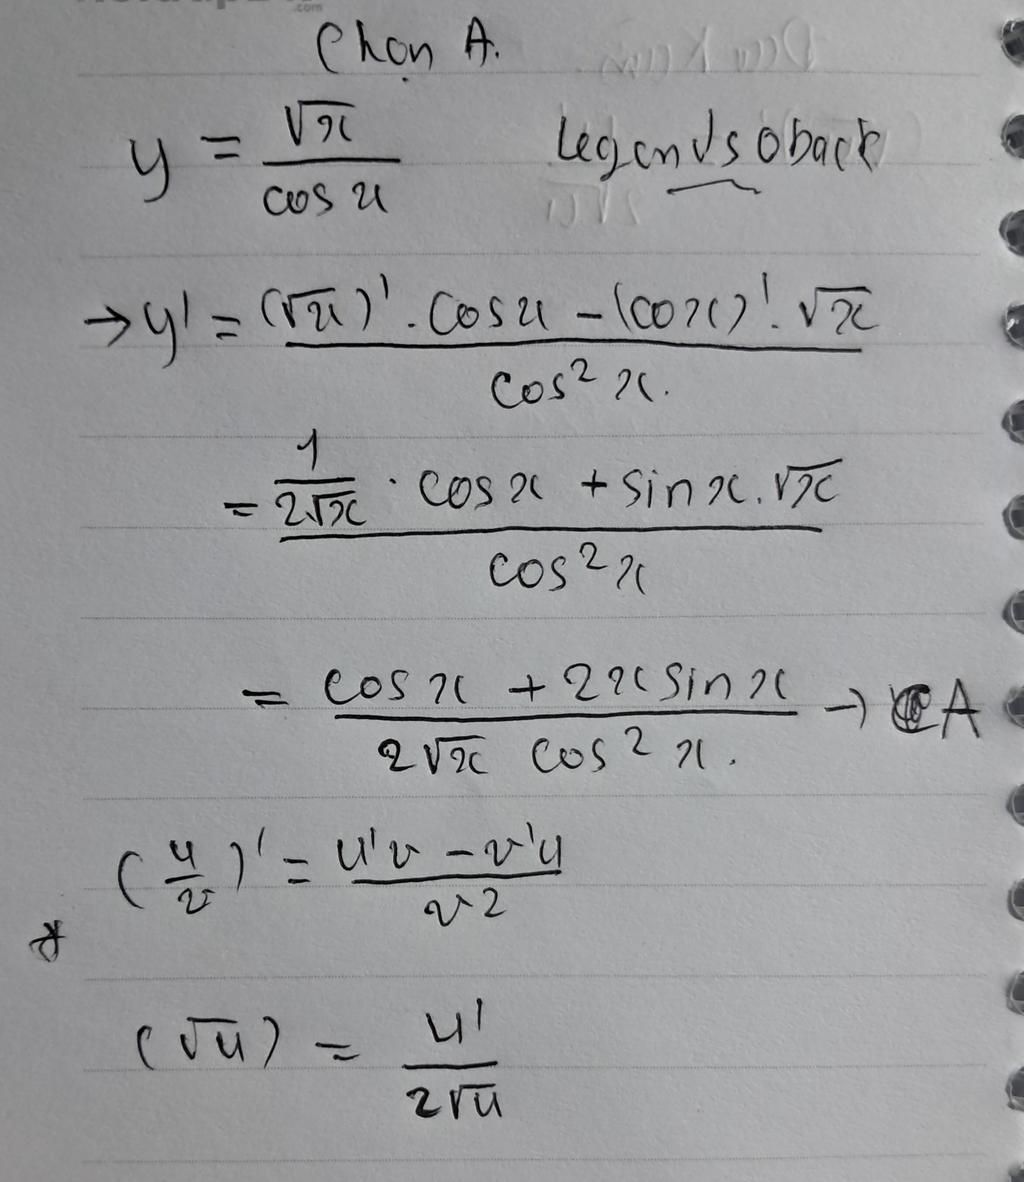 Chọn A.
y = √x / cos x
Legends0back
→ y' = ((√x)' . cos x - (cosx)' . √x) / cos² x.
= (1/(2√x) . cos x + sin x . √x) / cos² x
= (cos x + 2x sin x) / (2√x cos² x). → A
(u/v)' = (u'v - v'u) / v²
*
(√u) = u' / 2√u